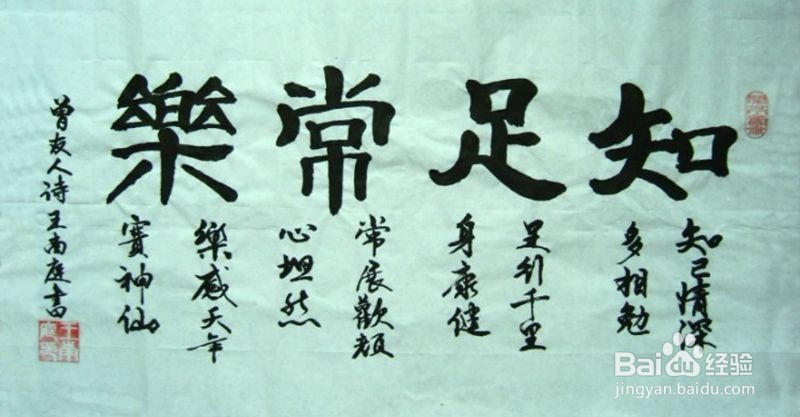 知足常樂
知己情深
多相勉
足行千里
身康健
常展歡颜
心坦然
樂感天年
賽神仙
曾友人诗王南庭書
Baidu经验
jingyan.baidu.com